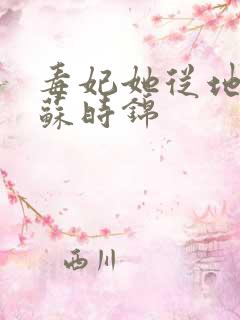 毒妃她从地
蘇時錦
西川